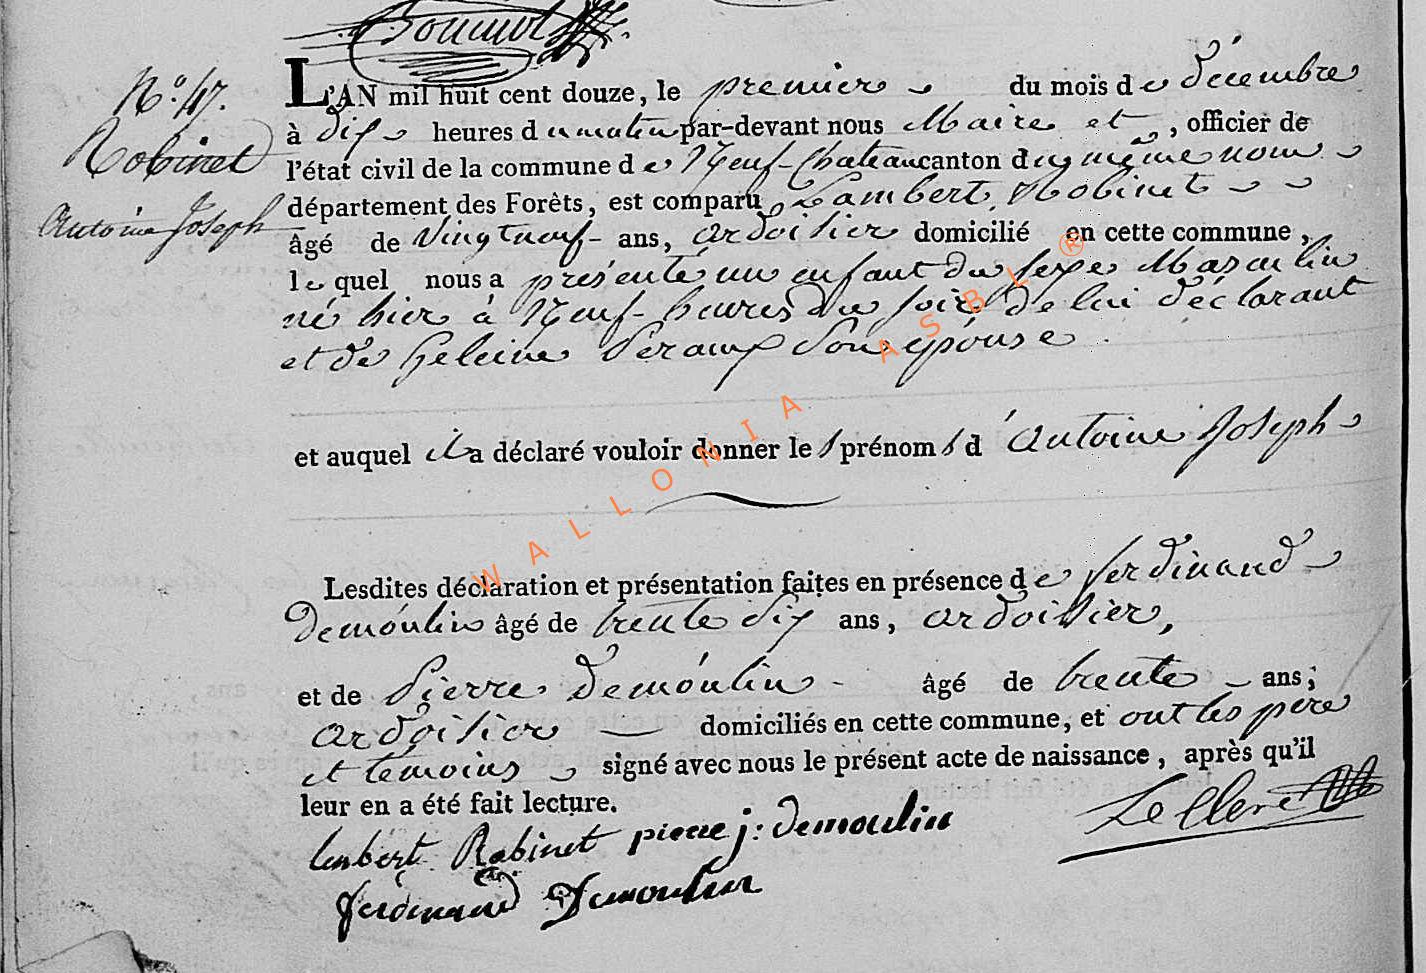 N.º 47.
Robinet
Antoine Joseph
L'AN mil huit cent douze, le premier du mois de décembre
à dix heures du matin par-devant nous Maire et , officier de
l'état civil de la commune de Neuf-Chateau canton du même nom
département des Forêts, est comparu Lambert Robinet
âgé de Vingt neuf ans, ardoisier domicilié en cette commune,
lequel nous a présenté un enfant du sexe Masculin
né hier à Neuf heures du soir de lui déclarant
et de Heleine son épouse
et auquel il a déclaré vouloir donner les prénoms d Antoine Joseph
Lesdites déclaration et présentation faites en présence de ferdinand
Demoulin âgé de trente six ans, ardoisier,
et de Pierre Demoulin âgé de trente ans;
ardoisier domiciliés en cette commune, et ont les père
et temoins signé avec nous le présent acte de naissance, après qu'il
leur en a été fait lecture.
Lambert Robinet pierre j: demoulin Le Clerc
ferdinand Demoulin
WALLONIA ASBL ®